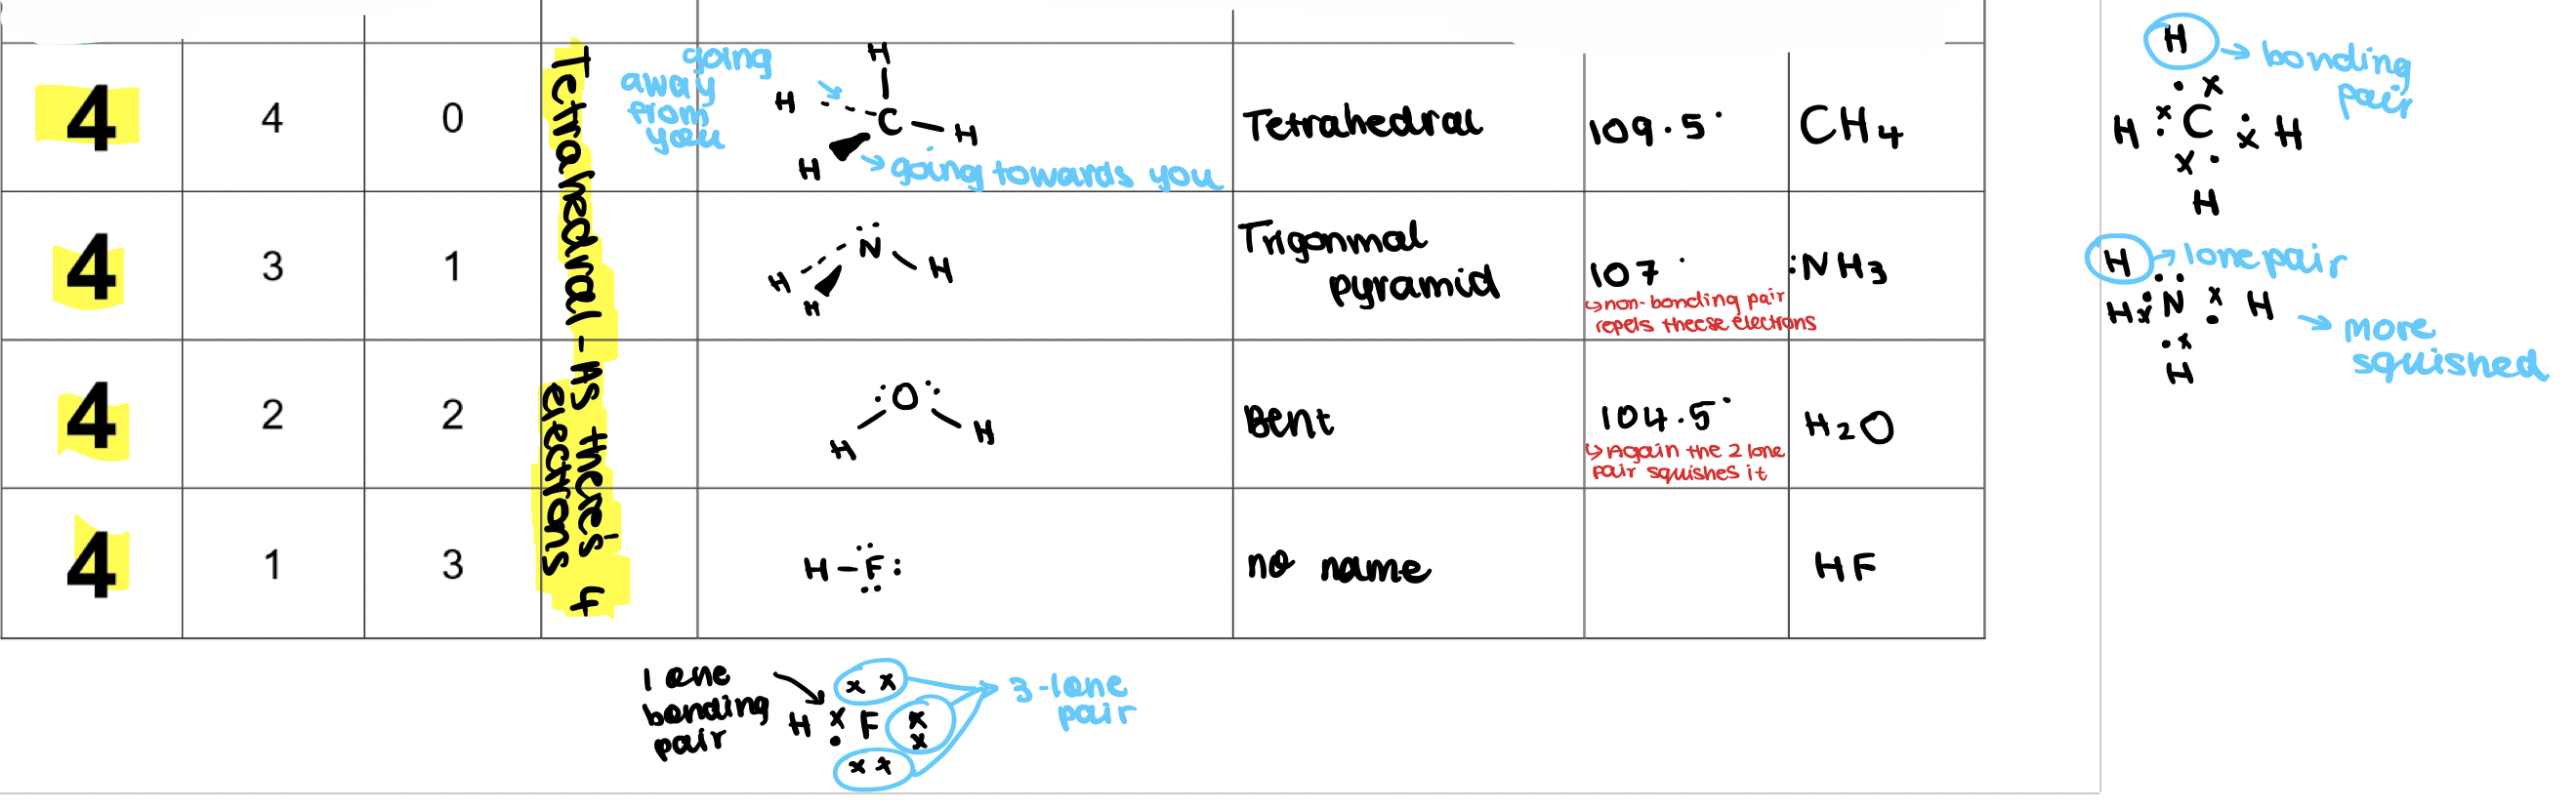 4 4 0
Tetrahedral - As there's 4
electrons
going
away
from
you
H
H
C
H
H
going towards you
Tetrahedral
109.5°
CH4
4 3 1
N
H
H
H
Trigonmal
pyramid
107°
↳non-bonding pair
repels theese electrons
:NH3
4 2 2
:O:
H
H
Bent
104.5°
↳Again the 2 lone
pair squishes it
H2O
4 1 3
H-F:
no name
HF
H
→ bonding
pair
x
H x C x H
x
H
H → lone pair
H x N x H
x
H
→ more
squished
1 one
bonding
pair
x x
H x F x
x
x x
3-lone
pair